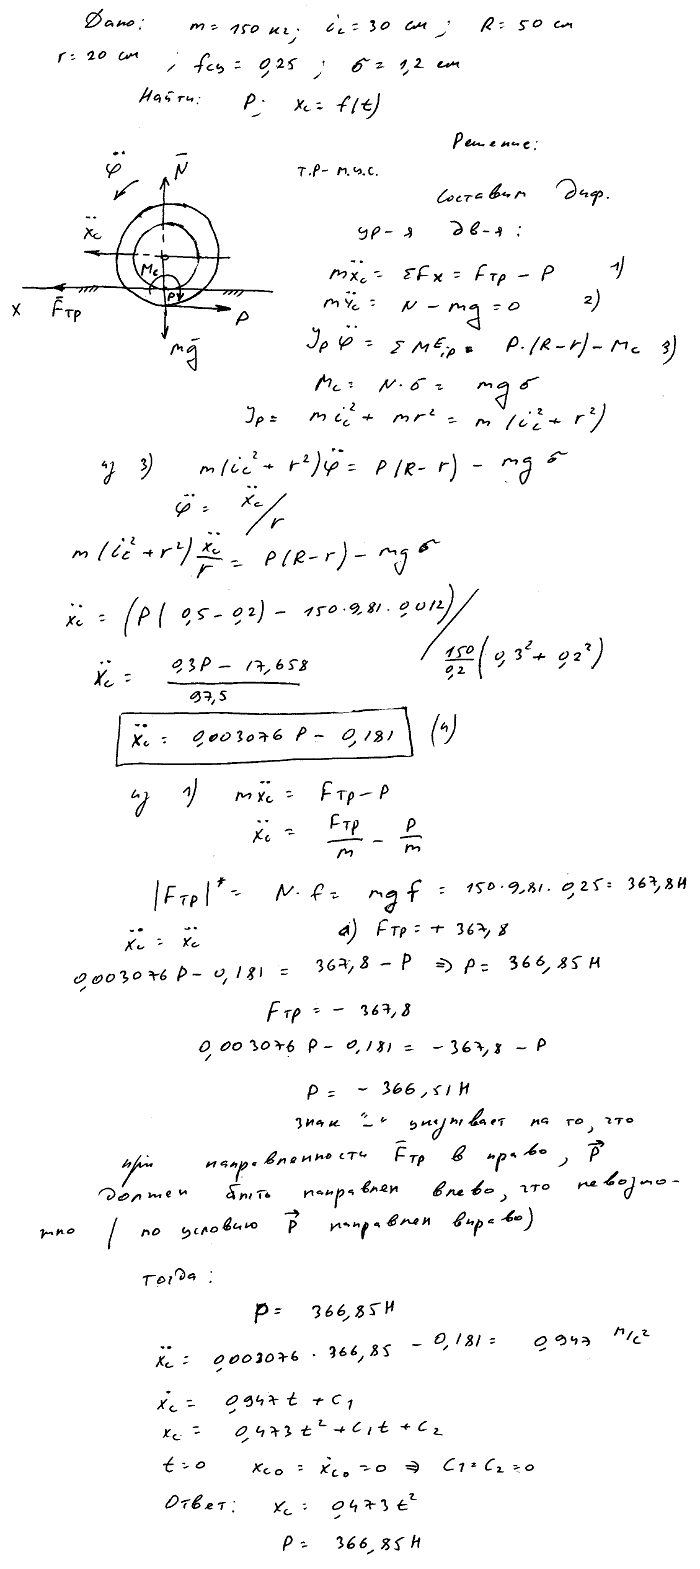 Дано: m = 150 кг; i_c = 30 см; R = 50 см
r = 20 см; f_сц = 0,25; б = 1,2 см
Найти: P; x_c = f(t)
Решение:
т.P - м.ц.с.
составим диф.
ур-я дв-я:
φ̈ N̄
ẍ_c
M_c
P
x F̄_тр P
mḡ
mẍ_c = ΣFx = F_тр - P 1)
mÿ_c = N - mg = 0 2)
J_P φ̈ = ΣM^E_iP = P·(R-r) - M_c 3)
M_c = N·б = mgб
J_P = mi_c² + mr² = m(i_c² + r²)
из 3) m(i_c² + r²)φ̈ = P(R-r) - mgб
φ̈ = ẍ_c/r
m(i_c² + r²) ẍ_c/r = P(R-r) - mgб
ẍ_c = (P(0,5-0,2) - 150·9,81·0,012) / 150/0,2 (0,3² + 0,2²)
ẍ_c = (0,3P - 17,658)/97,5
ẍ_c = 0,003076 P - 0,181 (4)
из 1) mẍ_c = F_тр - P
ẍ_c = F_тр/m - P/m
|F_тр|* = N·f = mgf = 150·9,81·0,25 = 367,8Н
ẍ_c = ẍ_c а) F_тр = + 367,8
0,003076 P - 0,181 = 367,8 - P ⇒ P = 366,85Н
F_тр = - 367,8
0,003076 P - 0,181 = -367,8 - P
P = - 366,51Н
знак "-" указывает на то, что
при направленности F̄_тр вправо, P⃗
должен быть направлен влево, что невозмо-
жно (по условию P⃗ направлен вправо)
тогда:
P = 366,85Н
ẍ_c = 0,003076 · 366,85 - 0,181 = 0,947 м/с²
ẋ_c = 0,947t + C₁
x_c = 0,473t² + C₁t + C₂
t=0 x_c0 = ẋ_c0 = 0 ⇒ C₁ = C₂ = 0
Ответ: x_c = 0,473t²
P = 366,85Н